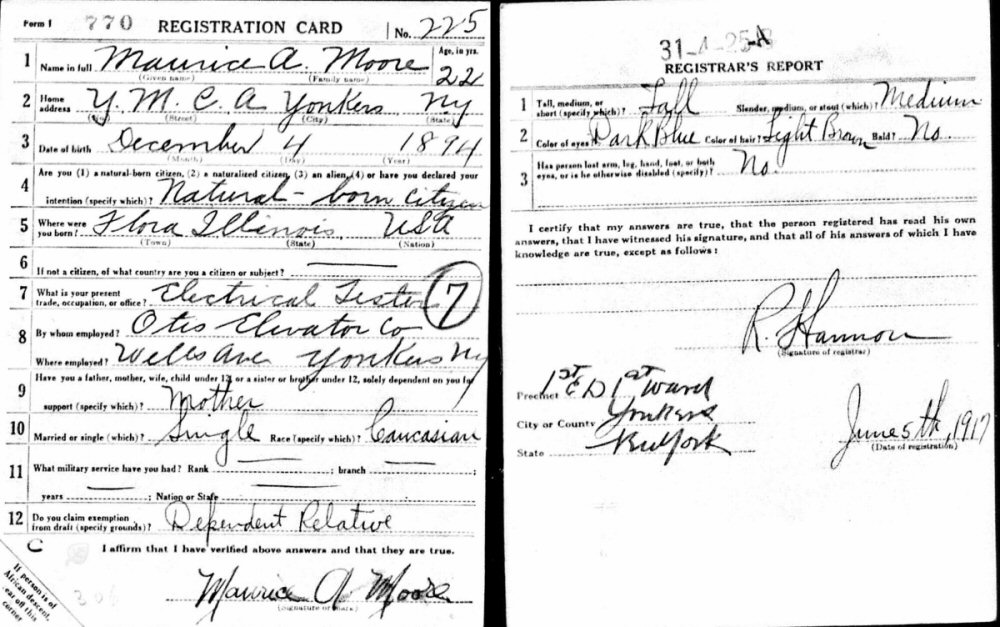 Form 1 770 REGISTRATION CARD No. 225
1 Name in full Maurice A. Moore Age, in yrs. 22
(Given name) (Family name)
2 Home address Y.M.C.A Yonkers Ny
(No.) (Street) (City) (State)
3 Date of birth December 4 1894
(Month) (Day) (Year)
4 Are you (1) a natural-born citizen, (2) a naturalized citizen, (3) an alien, (4) or have you declared your
intention (specify which)? Natural-born citizen
5 Where were you born? Flora Illinois USA
(Town) (State) (Nation)
6 If not a citizen, of what country are you a citizen or subject?
7 What is your present trade, occupation, or office? Electrical Tester 7
8 By whom employed? Otis Elevator Co
Where employed? Wells Ave Yonkers Ny
9 Have you a father, mother, wife, child under 12, or a sister or brother under 12, solely dependent on you for
support (specify which)? Mother
10 Married or single (which)? Single Race (specify which)? Caucasian
11 What military service have you had? Rank ; branch ;
years ; Nation or State
12 Do you claim exemption from draft (specify grounds)? Dependent Relative
C I affirm that I have verified above answers and that they are true.
Maurice A Moore
(Signature or mark)
If person is of
African descent,
tear off this
corner
31-4-25-A
REGISTRAR'S REPORT
1 Tall, medium, or short (specify which)? Tall Slender, medium, or stout (which)? Medium
2 Color of eyes? Dark Blue Color of hair? Light Brown Bald? No.
3 Has person lost arm, leg, hand, foot, or both
eyes, or is he otherwise disabled (specify)? No.
I certify that my answers are true, that the person registered has read his own
answers, that I have witnessed his signature, and that all of his answers of which I have
knowledge are true, except as follows:
R. Hannon
(Signature of registrar)
Precinct 1st E D 1st Ward
City or County Yonkers
State New York
June 5th, 1917
(Date of registration)